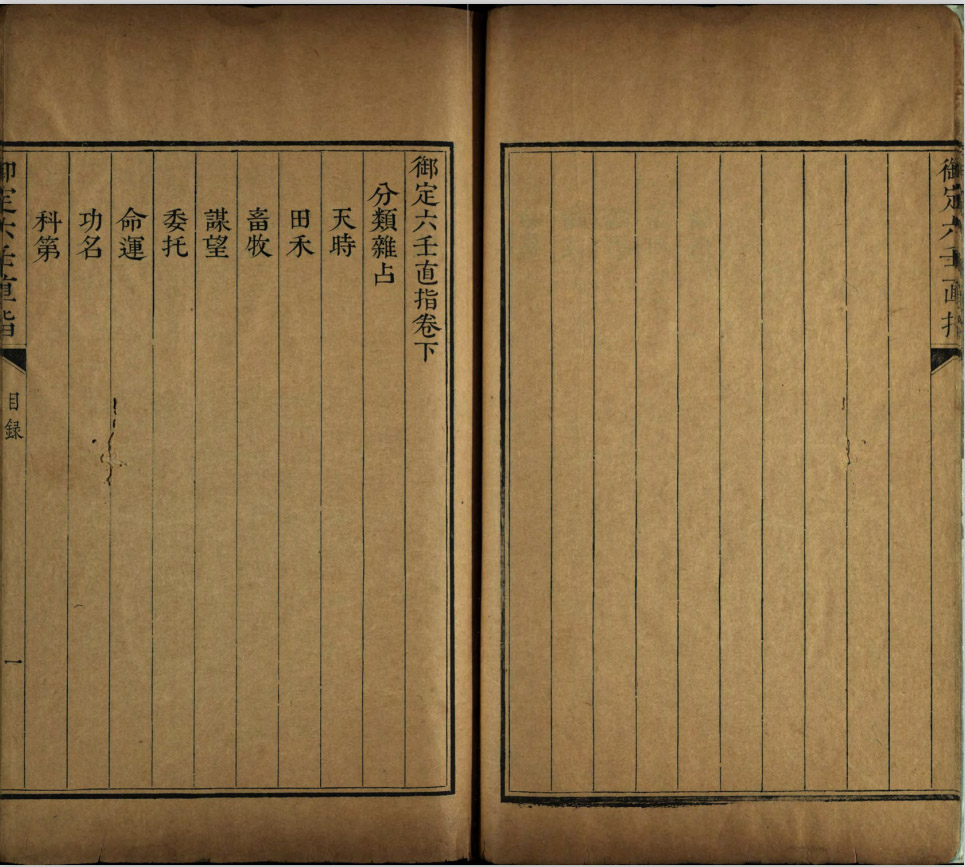 御定六壬直指
御定六壬直指卷下
分類雜占
天時
田禾
畜牧
謀望
委托
命運
功名
科第
御定六壬直指
目録
一